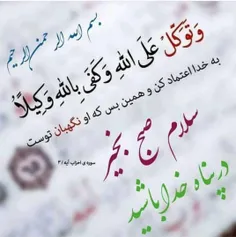 بسم الله الرحمن الرحیم
وَتَوَكَّلْ عَلَى اللهِ وَكَفَىٰ بِاللهِ وَكِيلًا
به خدا اعتماد کن و همین بس که او نگهبان توست
سوره ی احزاب آیه ۳
سلام صبح بخیر
در پناه خدا باشید